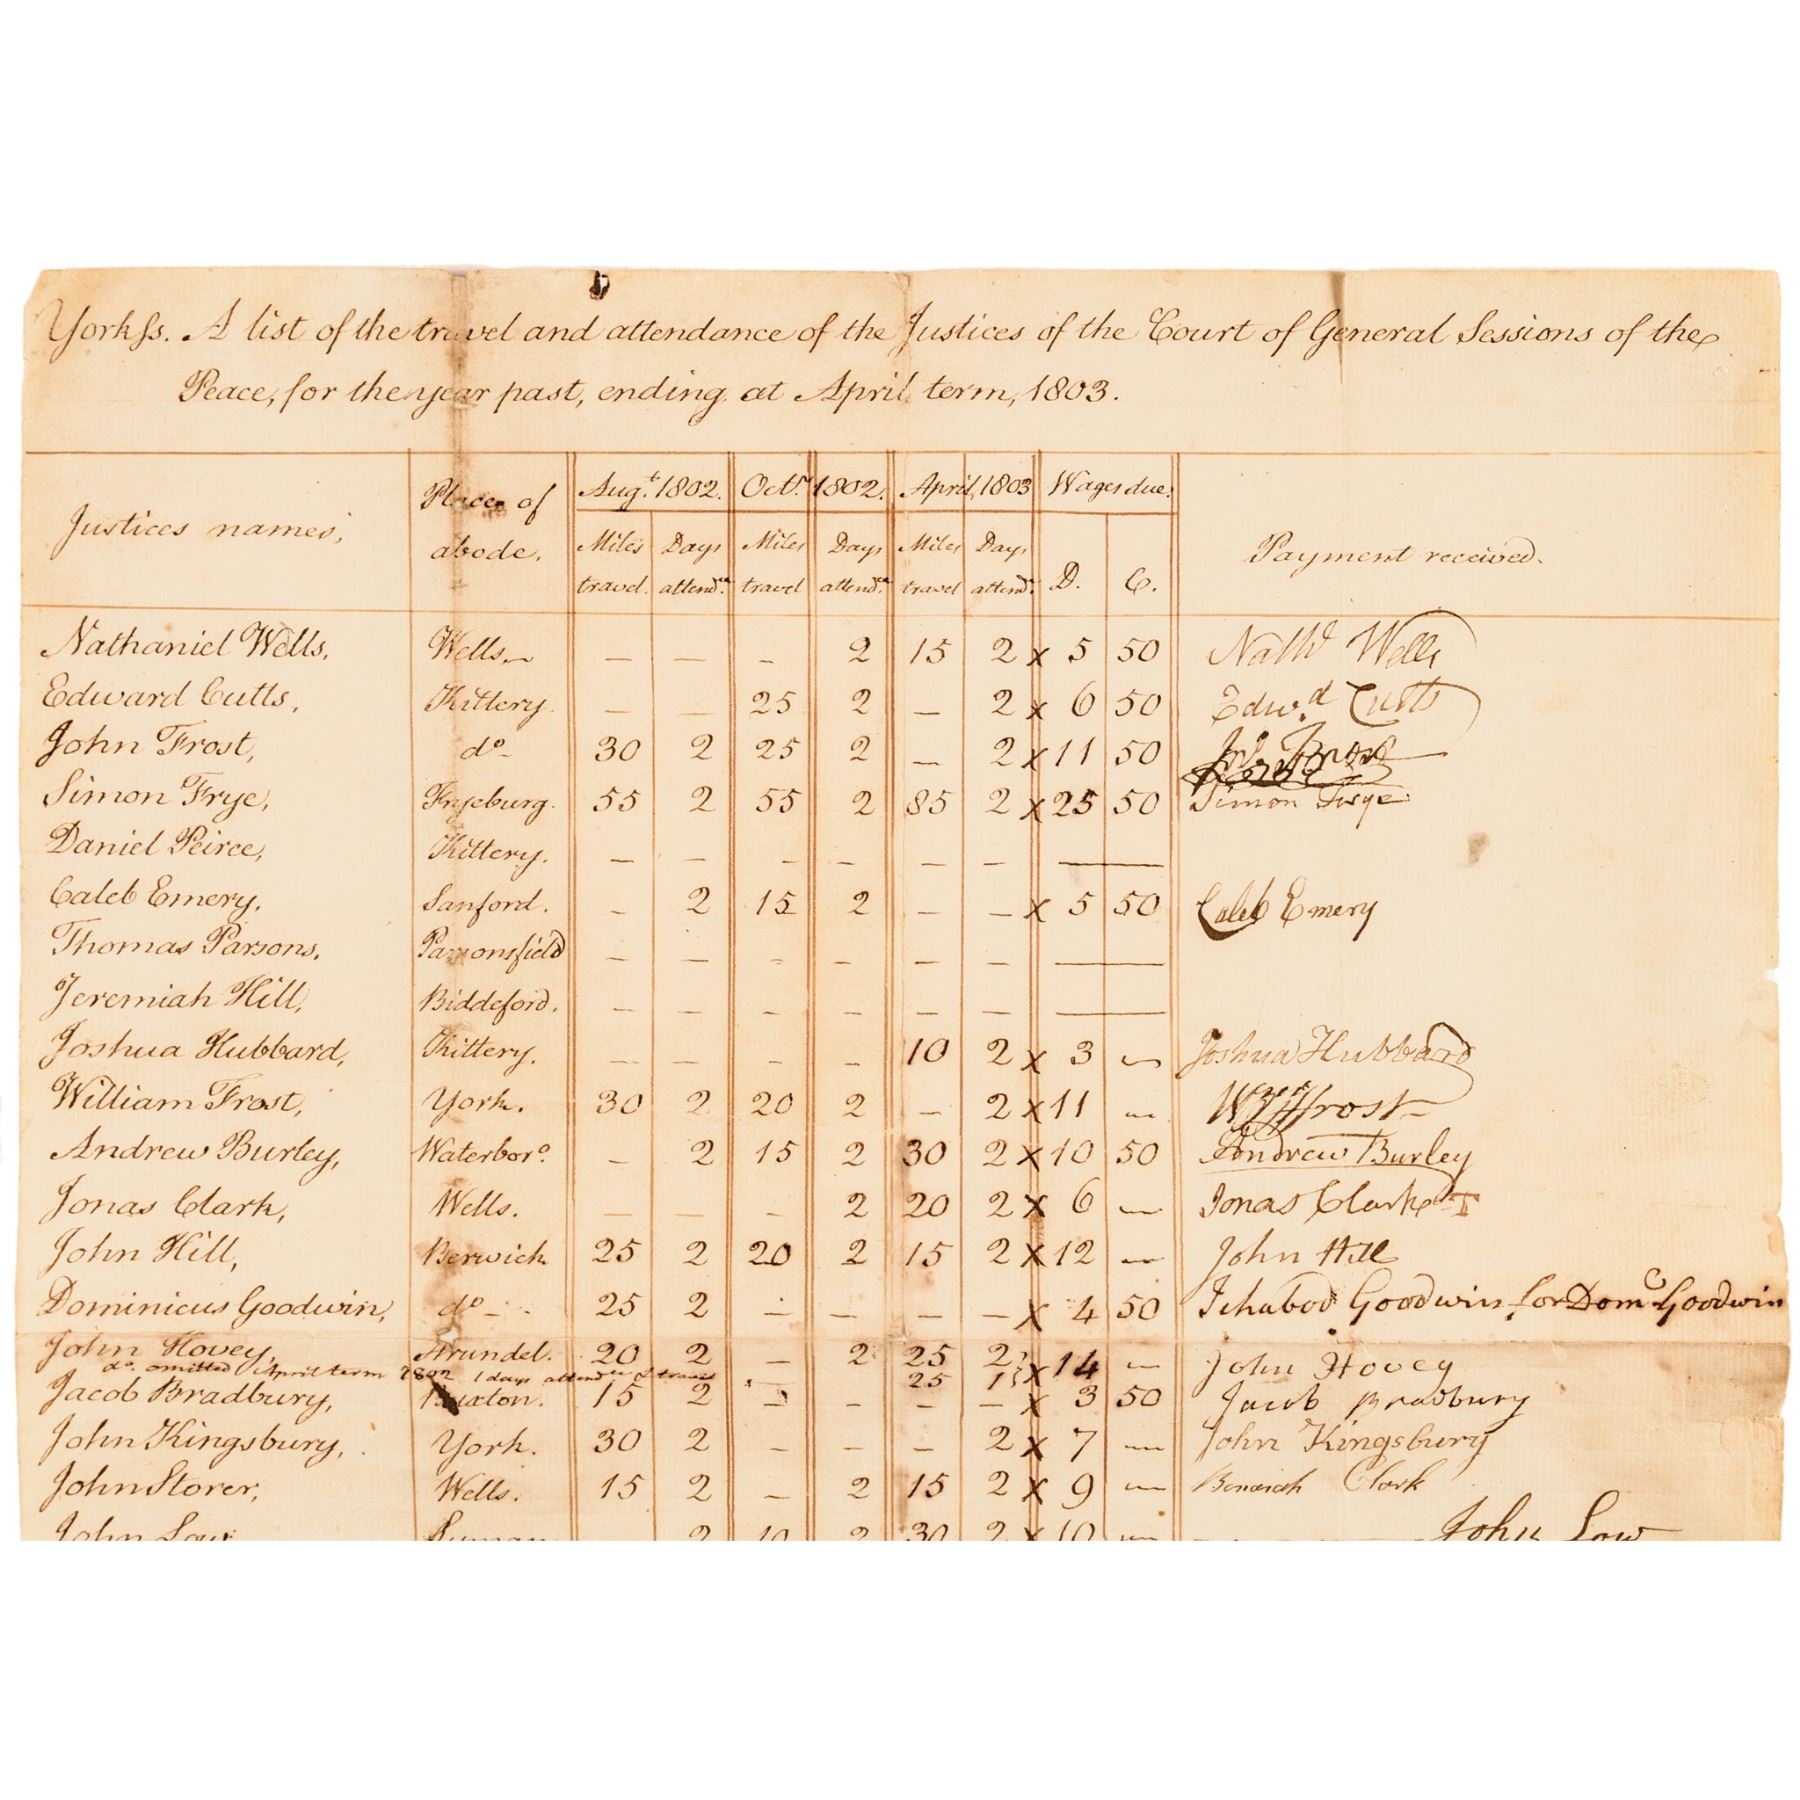 York ss. A list of the travel and attendance of the Justices of the Court of General Sessions of the
Peace, for the year past, ending at April term, 1803.
Justices names, Place of abode. Augt. 1802. Octr. 1802. April, 1803 Wages due. Payment received.
Miles travel. Days attendce. Miles travel Days attendce. Miles travel Days attendce. D. C.
Nathaniel Wells, Wells. — — - 2 15 2 x 5 50 Nathl Wells
Edward Cutts, Kittery. — — 25 2 — 2 x 6 50 Edwd. Cutts
John Frost, do- 30 2 25 2 — 2 x 11 50 Jno. Frost
Simon Frye, Fryeburg. 55 2 55 2 85 2 x 25 50 Simon Frye
Daniel Peirce, Kittery. — — - — — — ——
Caleb Emery, Sanford. - 2 15 2 — — x 5 50 Caleb Emery
Thomas Parsons, Parsonsfield — — - — — — ——
Jeremiah Hill, Biddeford. — — - — — — ——
Joshua Hubbard, Kittery. — — - — 10 2 x 3 — Joshua Hubbard
William Frost, York. 30 2 20 2 — 2 x 11 — Wm Frost
Andrew Burley, Waterboro. - 2 15 2 30 2 x 10 50 Andrew Burley
Jonas Clark, Wells. — — - 2 20 2 x 6 — Jonas Clark
John Hill, Berwick 25 2 20 2 15 2 x 12 — John Hill
Dominicus Goodwin, do- 25 2 — — — — x 4 50 Ichabod Goodwin for Domc Goodwin
John Hovey, Arundel. 20 2 — 2 25 2 x 14 — John Hovey
do. omitted April term 1802 1 days attendce & travel — 25 1
Jacob Bradbury, Buxton. 15 2 — — — — x 3 50 Jacob Bradbury
John Kingsbury, York. 30 2 — — — 2 x 7 — John Kingsbury
John Storer, Wells. 15 2 — 2 15 2 x 9 — Benaiah Clark
John Low, Lyman 2 10 2 30 2 x 10 — John Low